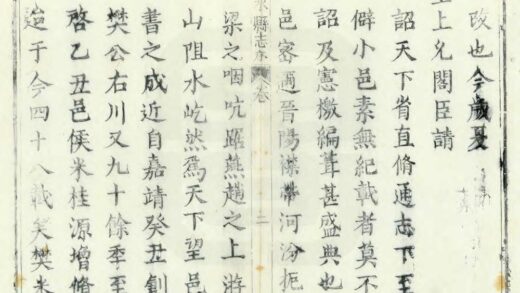 改也今歲夏
上允閣臣請
詔天下省直脩通志下至
僻小邑素無紀載者莫不
詔及憲檄編葺甚盛典也
邑密邇晉陽襟帶河汾扼
水縣志序 卷 二
梁之咽吭踞燕趙之上游
山阻水屹然爲天下望邑
書之成近自嘉靖癸丑創
樊公右川又九十餘季至
啓乙丑邑侯米桂源增脩
迨于今四十八載矣樊米